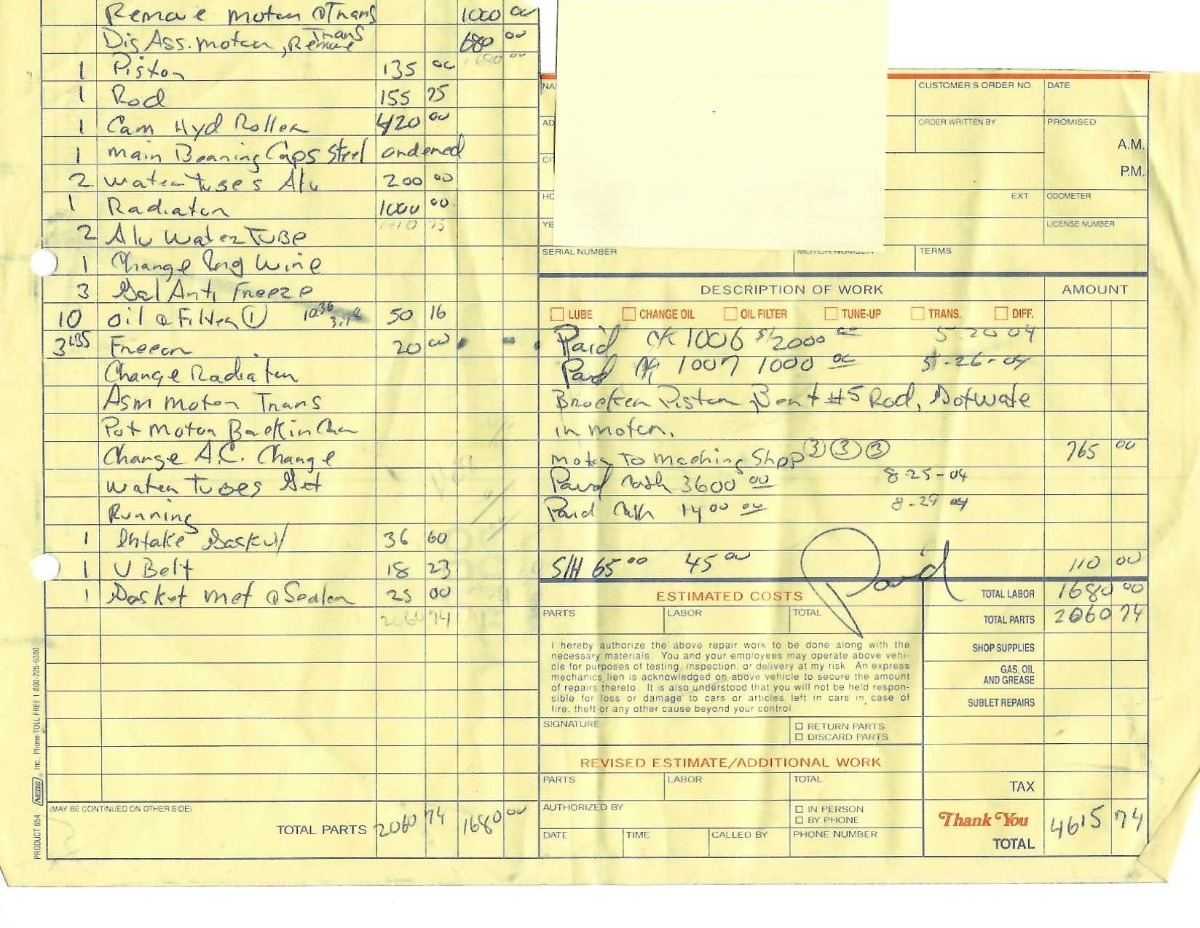 Remove motor & Trans 1000 00
Dis Ass. motor, Trans Remove 680 00
1 Piston 135 00
1 Rod 155 75
1 Cam Hyd Roller 420 00
1 Main Bearing Caps Steel ordered
2 Water tubes Alu 200 00
1 Radiator 1000 00
2 Alu Water Tube
1 Change Wire
3 Gal Anti Freeze
10 Oil & Filter 1 50 16
Freeon 20 00
Change Radiator
Asm Motor Trans
Put Motor Back in Car
Change A.C. Change
Water Tubes Get
Running
1 Intake Gasket 36 60
1 V Belt 18 23
1 Gasket Met & Sealer 25 00
2060 74
(MAY BE CONTINUED ON OTHER SIDE)
TOTAL PARTS 2060 74 1680 00
PRODUCT 654 NEBS Inc. Phone TOLL FREE 1 800-225-6380
CUSTOMER'S ORDER NO. DATE
ORDER WRITTEN BY PROMISED
A.M.
P.M.
EXT ODOMETER
LICENSE NUMBER
SERIAL NUMBER MOTOR NUMBER TERMS
DESCRIPTION OF WORK AMOUNT
LUBE CHANGE OIL OIL FILTER TUNE-UP TRANS. DIFF.
Paid CK 1006 $2000 00 5-20-04
Paid CK 1007 1000 00 5-26-04
Brocken Piston, Bent #5 Rod, Gotwate
in motor.
Motor To Maching Shop 3 3 3 765 00
Paid Cash 3600 00 8-25-04
Paid Cash 1400 00 8-29 04
Paid
S/H 65 00 45 00 110 00
ESTIMATED COSTS
PARTS LABOR TOTAL
TOTAL LABOR 1680 00
TOTAL PARTS 2060 74
SHOP SUPPLIES
GAS, OIL
AND GREASE
SUBLET REPAIRS
I hereby authorize the above repair work to be done along with the
necessary materials. You and your employees may operate above vehi-
cle for purposes of testing, inspection, or delivery at my risk. An express
mechanics lien is acknowledged on above vehicle to secure the amount
of repairs thereto. It is also understood that you will not be held respon-
sible for loss or damage to cars or articles left in cars in case of
fire, theft or any other cause beyond your control.
SIGNATURE
RETURN PARTS
DISCARD PARTS
REVISED ESTIMATE/ADDITIONAL WORK
PARTS LABOR TOTAL
TAX
AUTHORIZED BY
IN PERSON
BY PHONE
DATE TIME CALLED BY PHONE NUMBER
Thank You
TOTAL 4615 74